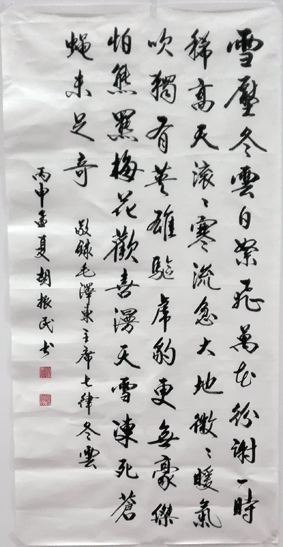 雪壓冬雲白絮飛萬花紛謝一時
稀高天滾〻寒流急大地微〻暖氣
吹獨有英雄驅虎豹更無豪傑
怕熊羆梅花歡喜漫天雪凍死蒼
蠅未足奇
敬録毛澤東主席七律冬雲
丙申孟夏胡振民书